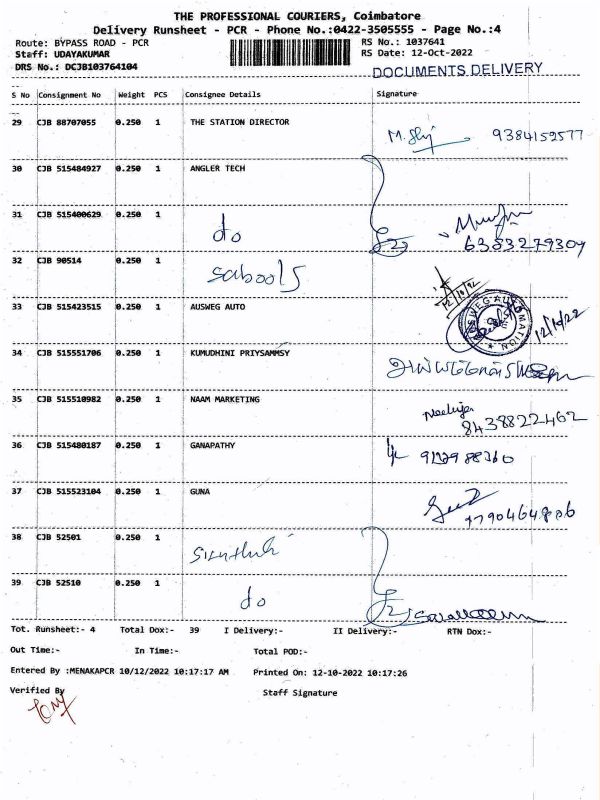 THE PROFESSIONAL COURIERS, Coimbatore
Delivery Runsheet - PCR - Phone No.:0422-3505555 - Page No.:4
Route: BYPASS ROAD - PCR RS No.: 1037641
Staff: UDAYAKUMAR RS Date: 12-Oct-2022
DRS No.: DCJB103764104 DOCUMENTS DELIVERY
S No Consignment No Weight PCS Consignee Details Signature
29 CJB 88707055 0.250 1 THE STATION DIRECTOR 9384152577
30 CJB 515484927 0.250 1 ANGLER TECH
31 CJB 515400629 0.250 1 do 6383279304
32 CJB 90514 0.250 1 sabools
33 CJB 515423515 0.250 1 AUSWEG AUTO AUSWEG AUTOMATION 12/10/22
34 CJB 515551706 0.250 1 KUMUDHINI PRIYSAMMSY
35 CJB 515510982 0.250 1 NAAM MARKETING 8438822462
36 CJB 515480187 0.250 1 GANAPATHY
37 CJB 515523104 0.250 1 GUNA
38 CJB 52501 0.250 1
39 CJB 52510 0.250 1 do
Tot. Runsheet:- 4 Total Dox:- 39 I Delivery:- II Delivery:- RTN Dox:-
Out Time:- In Time:- Total POD:-
Entered By :MENAKAPCR 10/12/2022 10:17:17 AM Printed On: 12-10-2022 10:17:26
Verified By Staff Signature